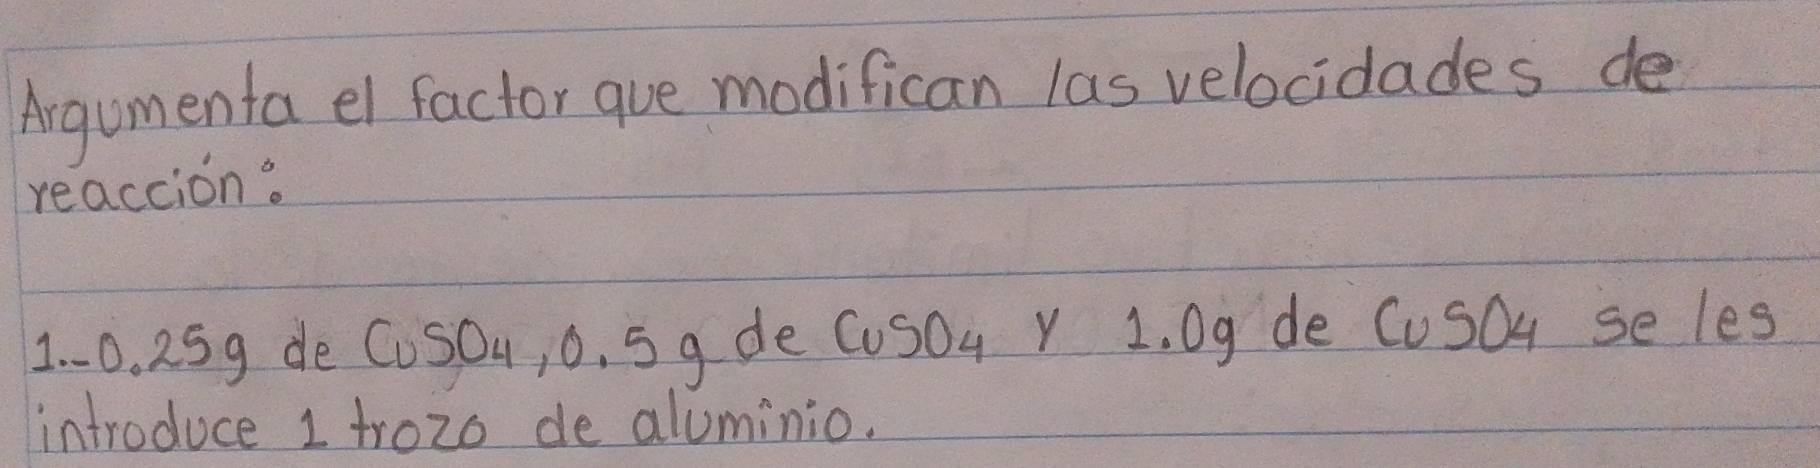 Argumenta el factor que modifican las velocidades de
reacción:
1.-0.25g de CuSO4, 0.5g de CuSO4 y 1.0g de CuSO4 se les
introduce 1 trozo de aluminio.